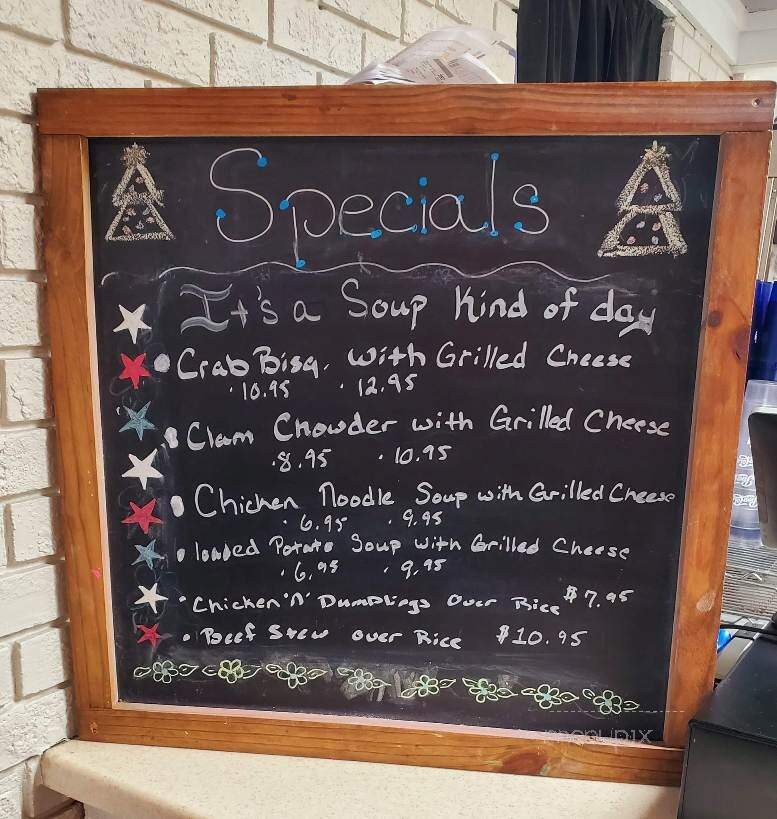 Specials
It's a Soup Kind of day
• Crab Bisq. with Grilled Cheese
· 10.95 · 12.95
• Clam Chowder with Grilled Cheese
· 8.95 · 10.95
• Chicken Noodle Soup with Grilled Cheese
· 6.95 · 9.95
• loaded Potato Soup with Grilled Cheese
· 6.95 · 9.95
• Chicken 'N' Dumplings Over Rice $7.95
• Beef Stew over Rice $10.95
menupix